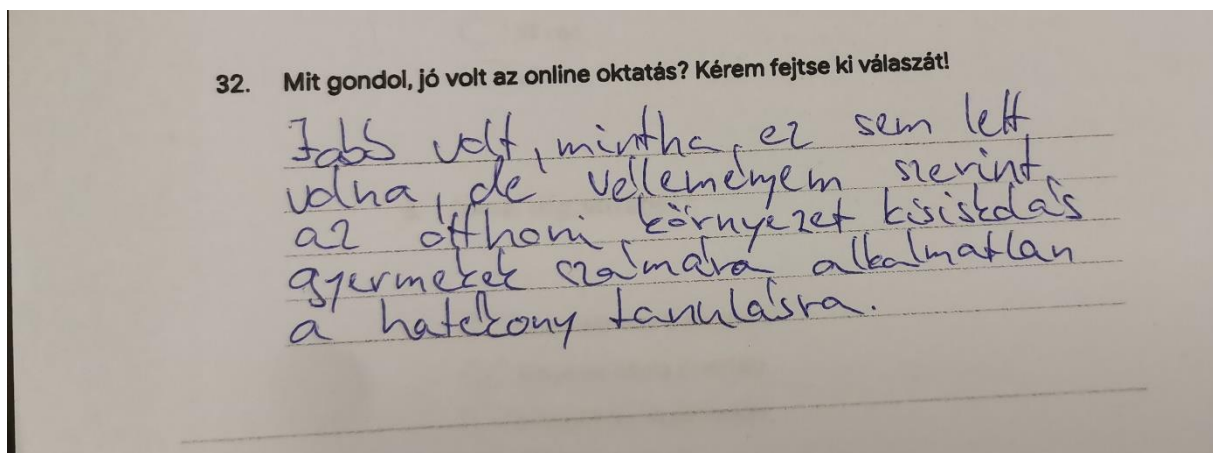 32. Mit gondol, jó volt az online oktatás? Kérem fejtse ki válaszát!
Jobb volt, mintha ez sem lett
volna, de véleményem szerint
az otthoni környezet kisiskolás
gyermekek számára alkalmatlan
a hatékony tanulásra.